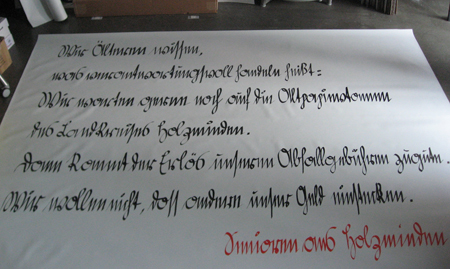 Wir Älteren wissen,
was verantwortungsvoll handeln heißt:
Wir warten gerne noch auf die Altpapiertonnen
des Landkreises Holzminden.
Dann kommt der Erlös unseren Abfallgebühren zugute.
Wir wollen nicht, dass andere unser Geld einstecken.
Senioren aus Holzminden